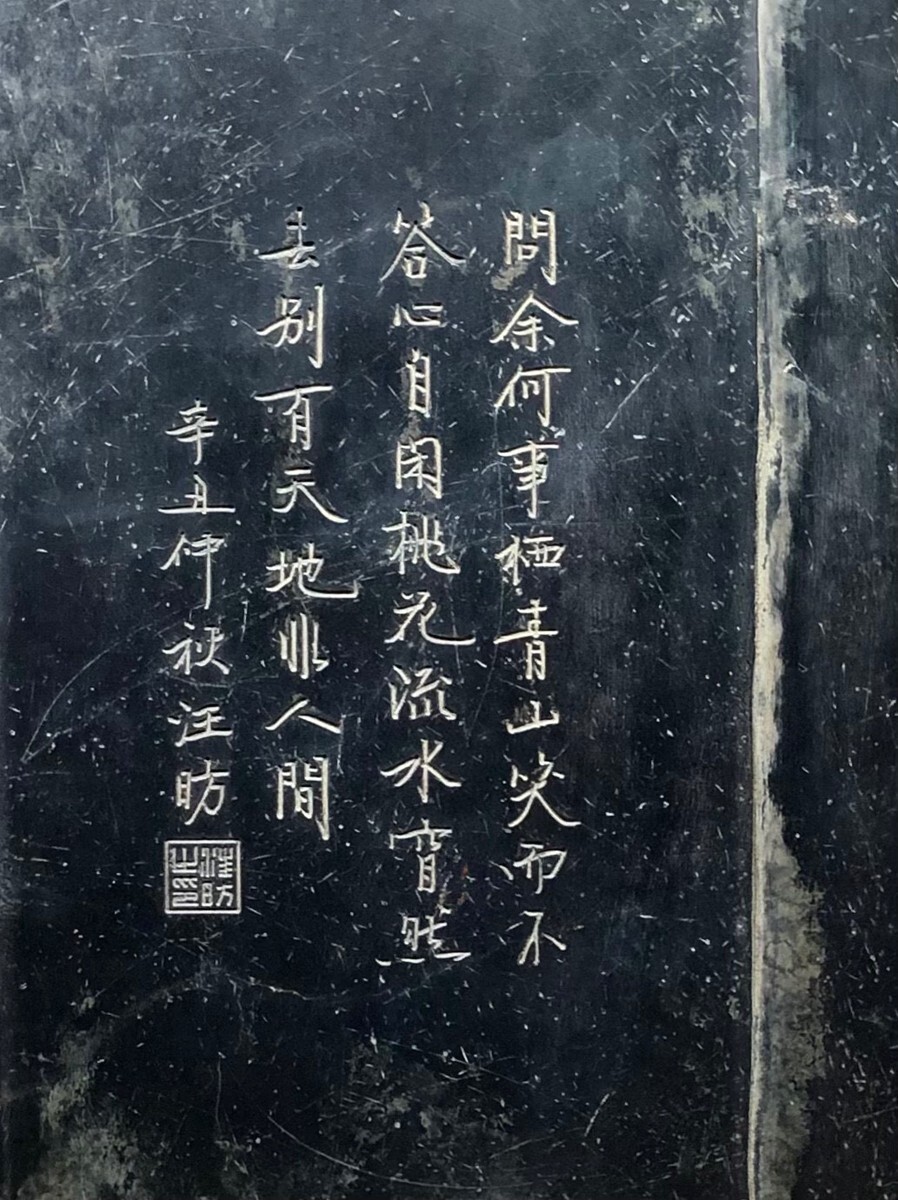 問余何事栖青山笑而不
答心自闲桃花流水窅然
去别有天地非人間
辛丑仲秋汪昉
汪昉之印